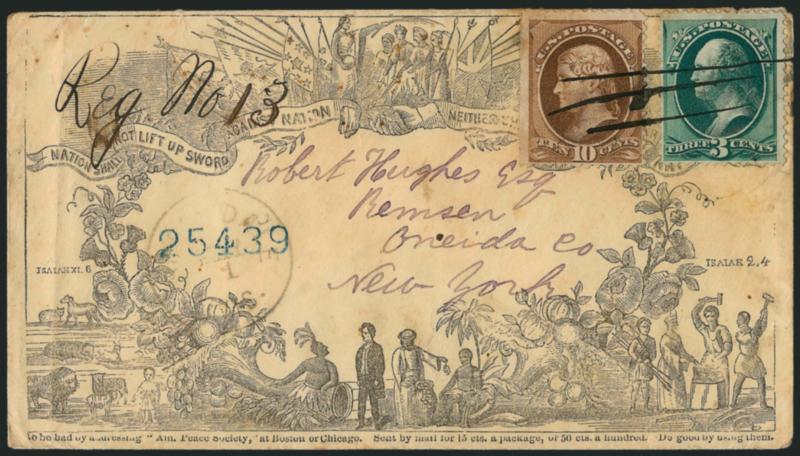 Reg No 13
NATION SHALL NOT LIFT UP SWORD AGAINST NATION NEITHER
U.S. POSTAGE
TEN 10 CENTS
U.S. POSTAGE
THREE 3 CENTS
Robert Hughes Esq
Remsen
Oneida Co
New York
25439
1
ISAIAH XI. 6
ISAIAH 2,4
to be had by addressing "Am. Peace Society," at Boston or Chicago. Sent by mail for 15 cts. a package, or 50 cts. a hundred. Do good by using them.